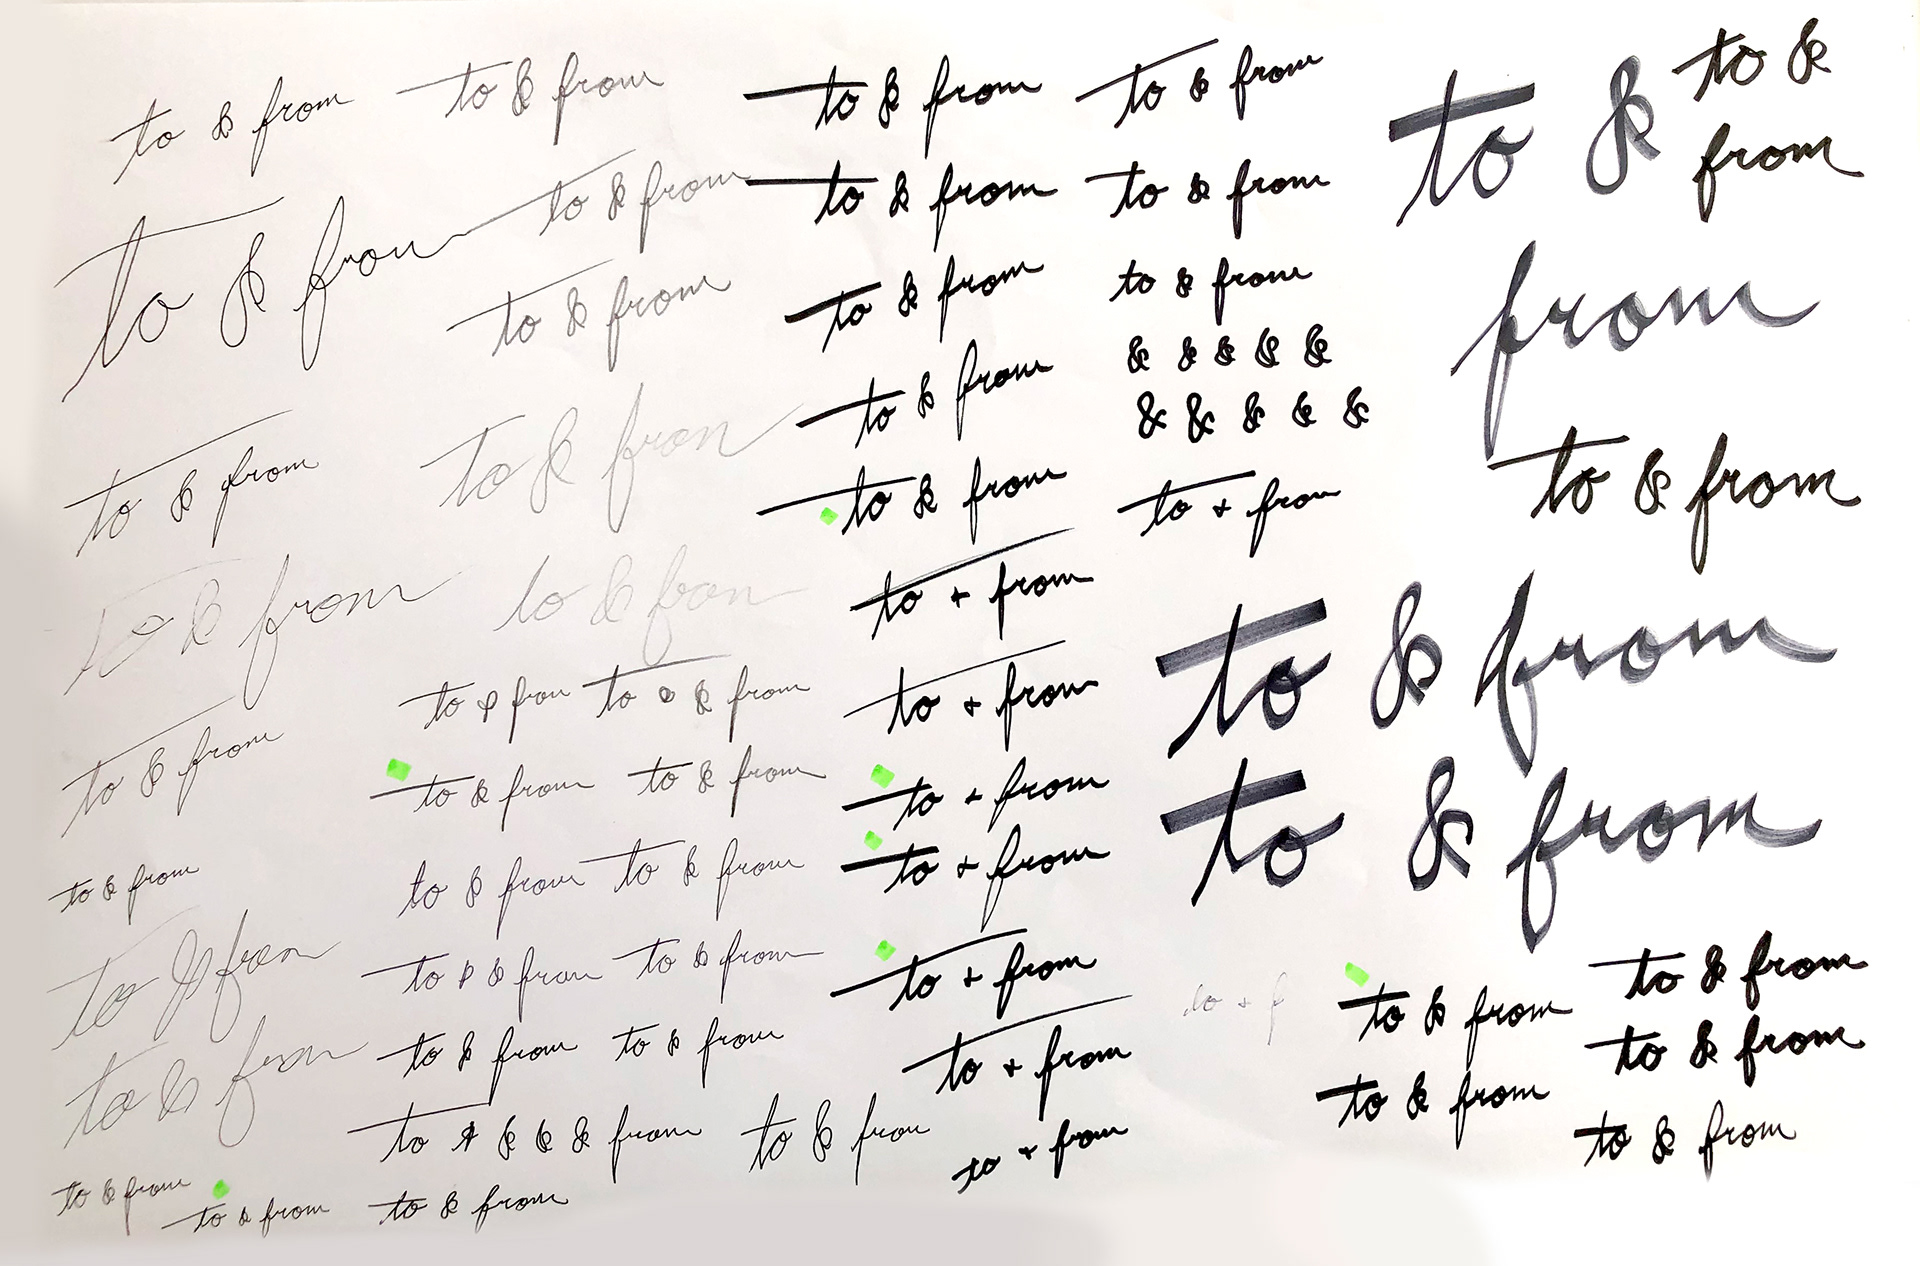 to & from
to & from
to & from
to & from
to &
to & from
to & from
from
to & from
to & from
to & from
to & from
to & from
to & from
to & from
from
to & from
& & & & &
to & from
& & & & &
to & from
to & from
to & from
to & from
to + from
to & from
to & from
to & from
to + from
to & from
to & from
to & from
to + from
to & from
to & from
to & from
to + from
to & from
to & from
to & from
to + from
to & from
to & from
to & from
to + from
to & from
to & from
to + f
to & from
to & from
to & from
to & from
to + from
to & from
to & & & & from
to & from
to + from
to & from
to & from
to & from
to & from